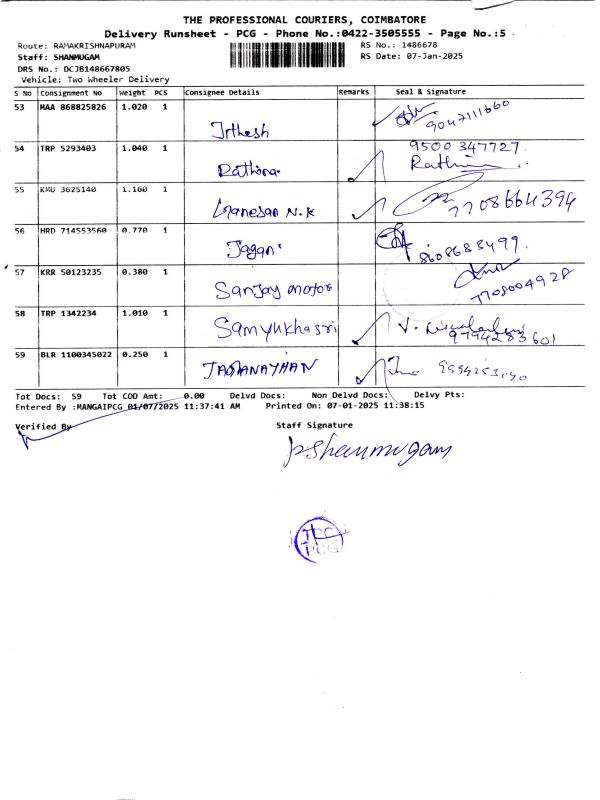 THE PROFESSIONAL COURIERS, COIMBATORE
Delivery Runsheet - PCG - Phone No.:0422-3505555 - Page No.:5
Route: RAMAKRISHNAPURAM RS No.: 1486678
Staff: SHANMUGAM RS Date: 07-Jan-2025
DRS No.: DCJB148667805
Vehicle: Two Wheeler Delivery
S No Consignment No Weight PCS Consignee Details Remarks Seal & Signature
53 MAA 868825826 1.020 1
Jrthesh 9047111660
54 TRP 5293403 1.040 1 9500347727.
Rathina. Rathina
55 KMU 3625140 1.160 1
Ganesan N.K 7708664394
56 HRD 714553560 0.770 1
Jagan 8608683499.
57 KRR 50123235 0.380 1
Sanjay motor 7705004928
58 TRP 1342234 1.010 1
Samyukhasri V. 9794283601
59 BLR 1100345022 0.250 1
Tot Docs: 59 Tot COD Amt: 0.00 Delvd Docs: Non Delvd Docs: Delvy Pts:
Entered By :MANGAIPCG 01/07/2025 11:37:41 AM Printed On: 07-01-2025 11:38:15
Verified By Staff Signature
P Shanmugam
PCG